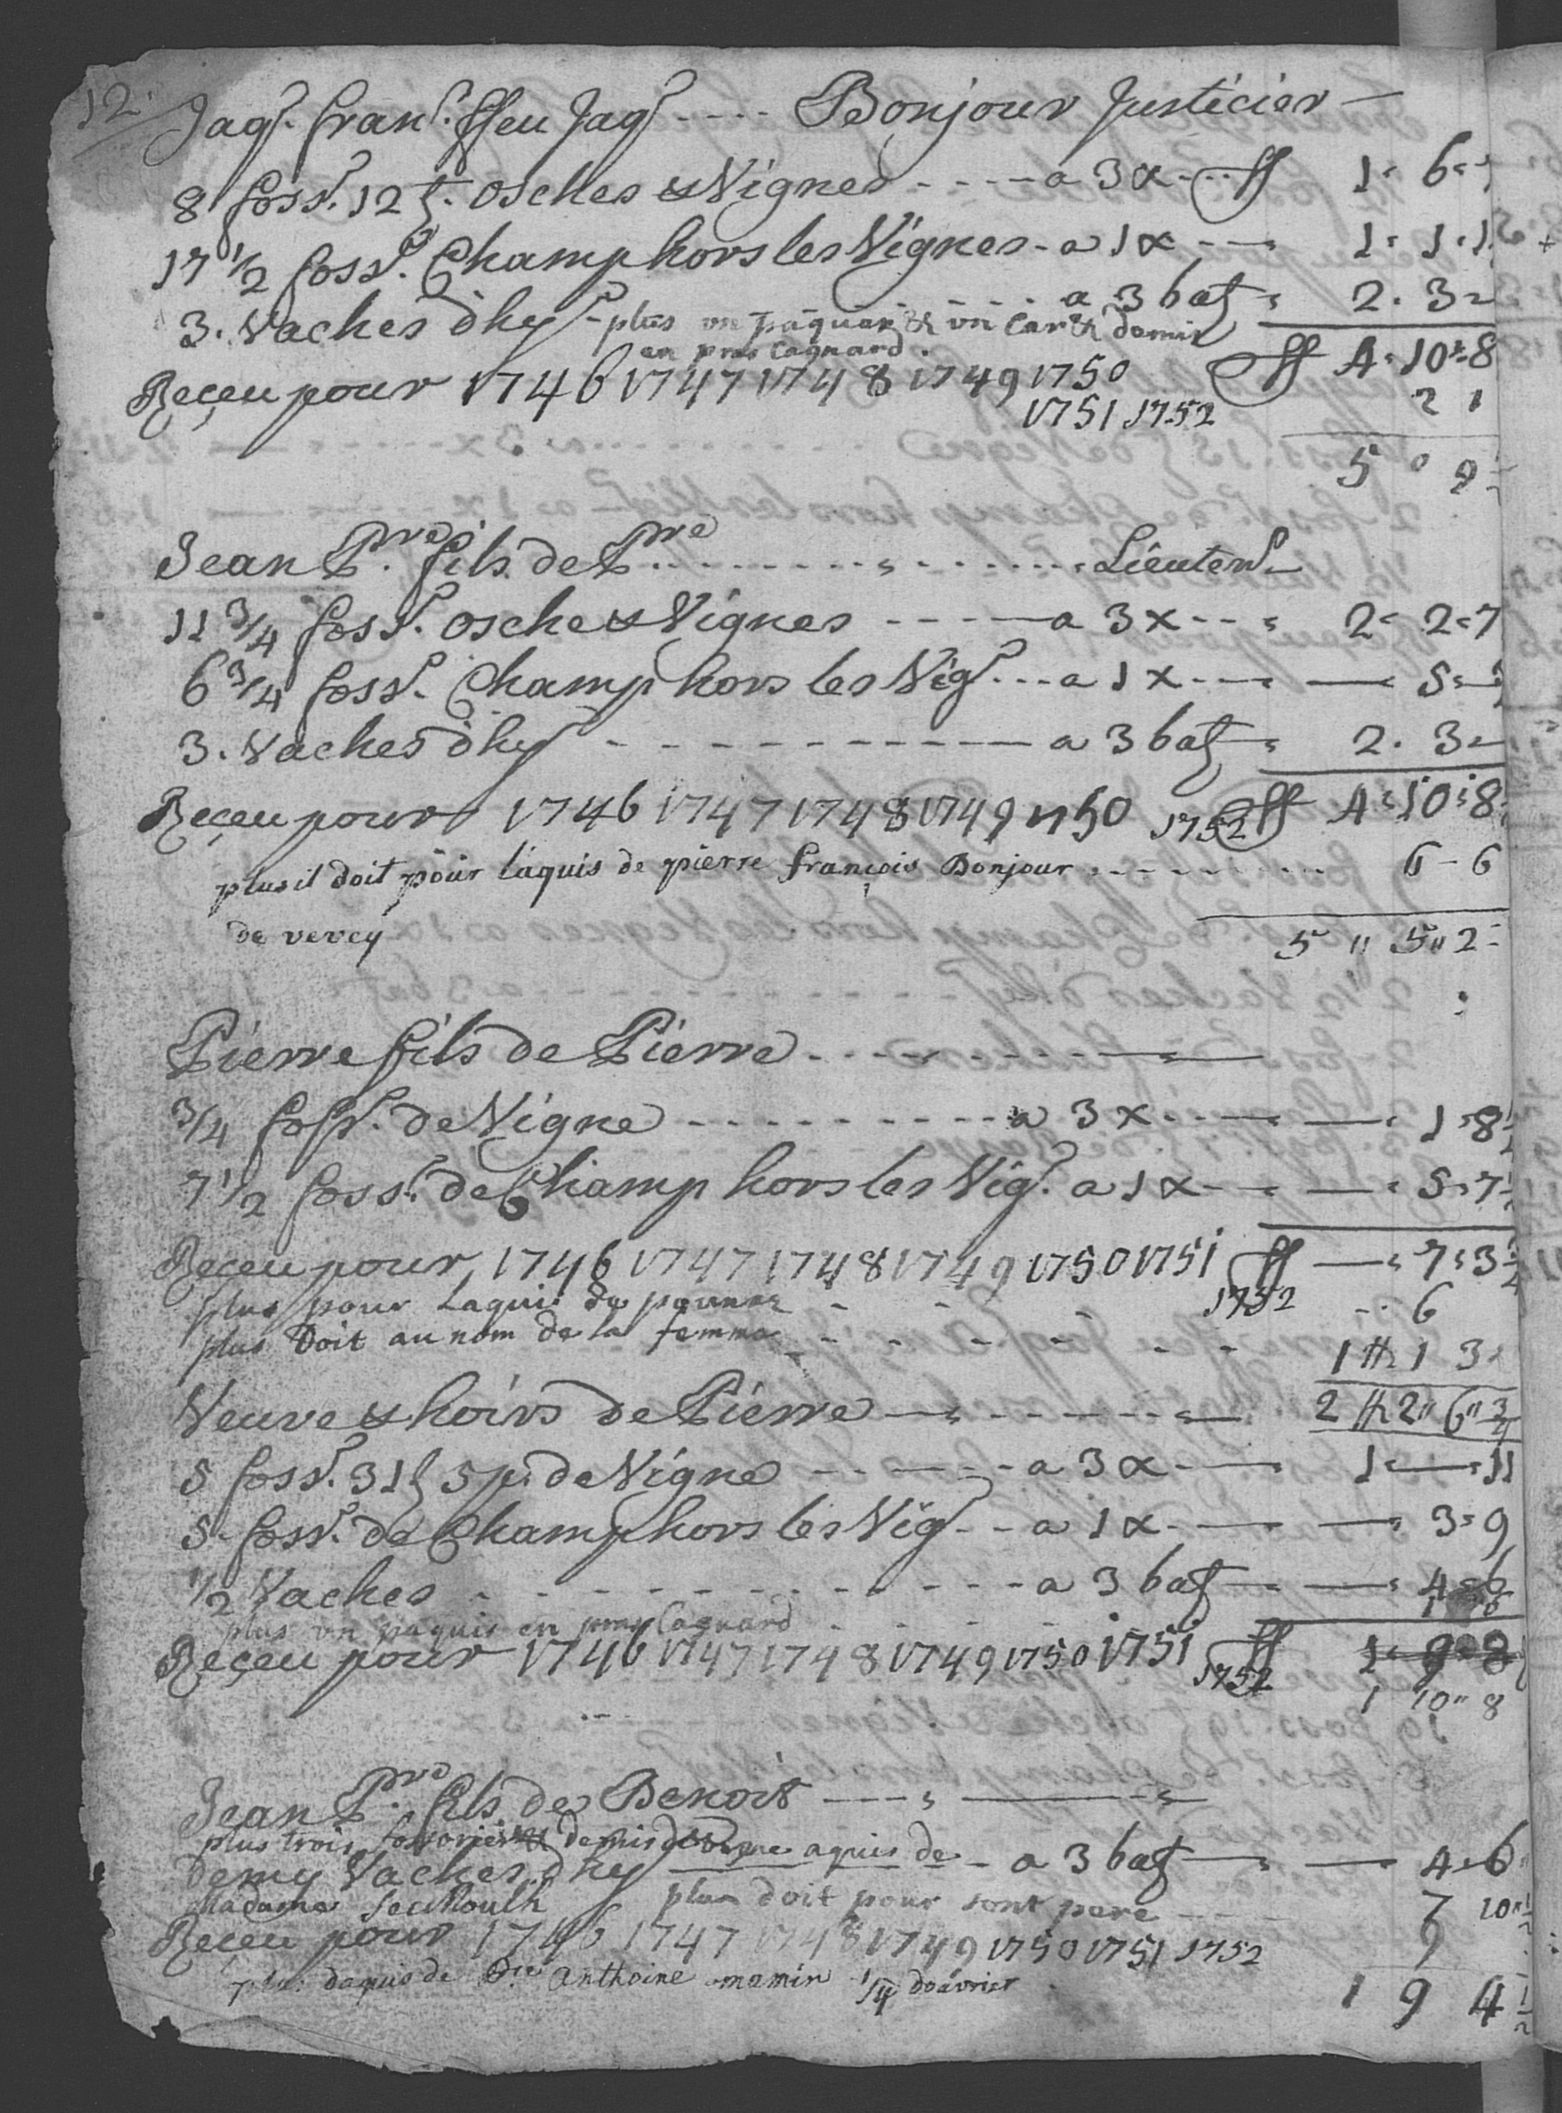 12.
Jaqs. frans. ffeu Jaqs .... Bonjour Justicier —
8 foss.rs 12 ζ. osches & Vignes - - - - a 3 x - - ff 1 " 6 "
17 1/2 foss.rs Champ hors les Vignes - a 1 x - - 1 " 1 " 1
3. Vaches d'hyr - - - - a 3 batz " 2 . 3 "
plus un paquar & un car & demis
en prez Cagnard .
Reçeu pour 1746 1747 1748 1749 1750 ff 4 " 10 " 8
1751 1752 2 1
5 0 9
Jean Pre. fils de Pre. . . . . . . . . . . . Lieuten.t
11 3/4 foss.rs osche & Vignes - - - - a 3 x - - " 2 " 2 " 7
6 3/4 foss.rs Champ hors les Vig.s . . . a 1 x - - - — " 5 "
3. Vaches d'hyr - - - - - - - - a 3 batz " 2 . 3 "
Reçeu pour 1746 1747 1748 1749 1750 1752 ff 4 " 10 " 8
plus il doit pour l'aquis de pierre françois Bonjour . - - - - - 6 - 6
de vevey 5 " 5 " 2
Pierre fils de Pierre . - - - - - -
3/4 foss.r de Vigne - - - - - - - a 3 x - - - — " 1 " 8
7 1/2 foss.rs de Champ hors les Vig.s a 1 x - - — " 5 " 7
Reçeu pour 1746 1747 1748 1749 1750 1751 ff — " 7 " 3
plus pour Laquis de - - - 1752 - 6
plus Doit au nom de la femme - - - - - - 1 ff 1 3
Veuve & hoirs de Pierre - - - - - - 2 ff 2 " 6 " 3/4
5 foss.rs 31 ζ 5 p. de Vigne - - - - a 3 x - - 1 — " 11
5 foss.rs de Champ hors les Vig.s - - a 1 x - - — " 3 " 9
1/2 Vaches - - - - - - - - - a 3 batz - — " 4 " 6
plus un paquis en prez Cagnard - - - - - - 1
Reçeu pour 1746 1747 1748 1749 1750 1751 ff 1 " 9 " 8
1752 1 10 " 8
Jean Pre. fils de Benoit - - - " ——— "
plus trois fossorier & demis de vigne aquis de
demy Vaches d'hyr - a 3 batz - — 4 " 6
Madame plus doit pour sont pere - - - - 7 10 " 1/2
Reçeu pour 1746 1747 1748 1749 1750 1751 1752 9
plus daquis de anthoine mamin 1/4 doavrier
1 9 4 1/2